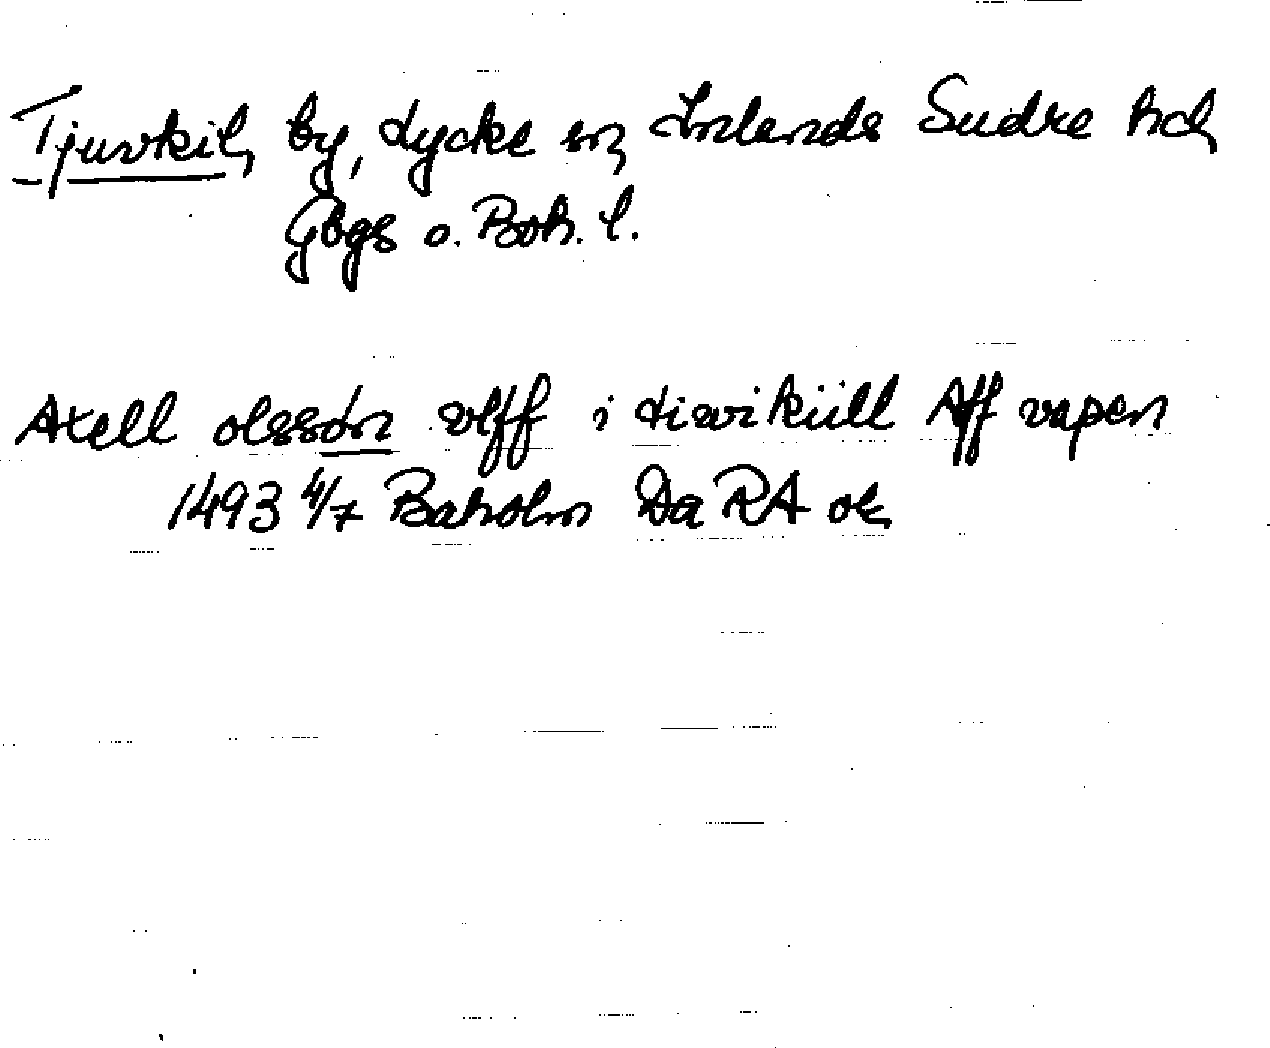 Tjuvkil, by, Lycke sn, Inlands Södre hd,
Gbgs o. Boh. l.
Axell olssøn vlff i tiwiküll Aff vapen
1493 4/7 Baholm Da RA or,